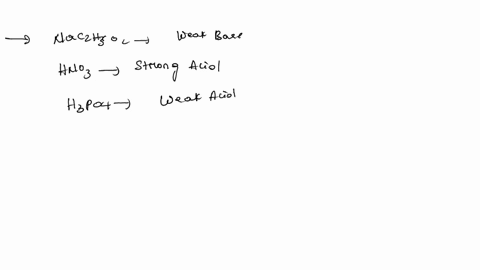 → NaC2H3O2 → Weak Base
HNO3 → Strong Acid
H3PO4 → Weak Acid